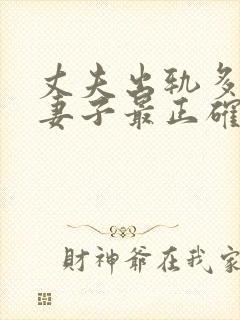 丈夫出轨多
妻子最正確
財神爺在我家